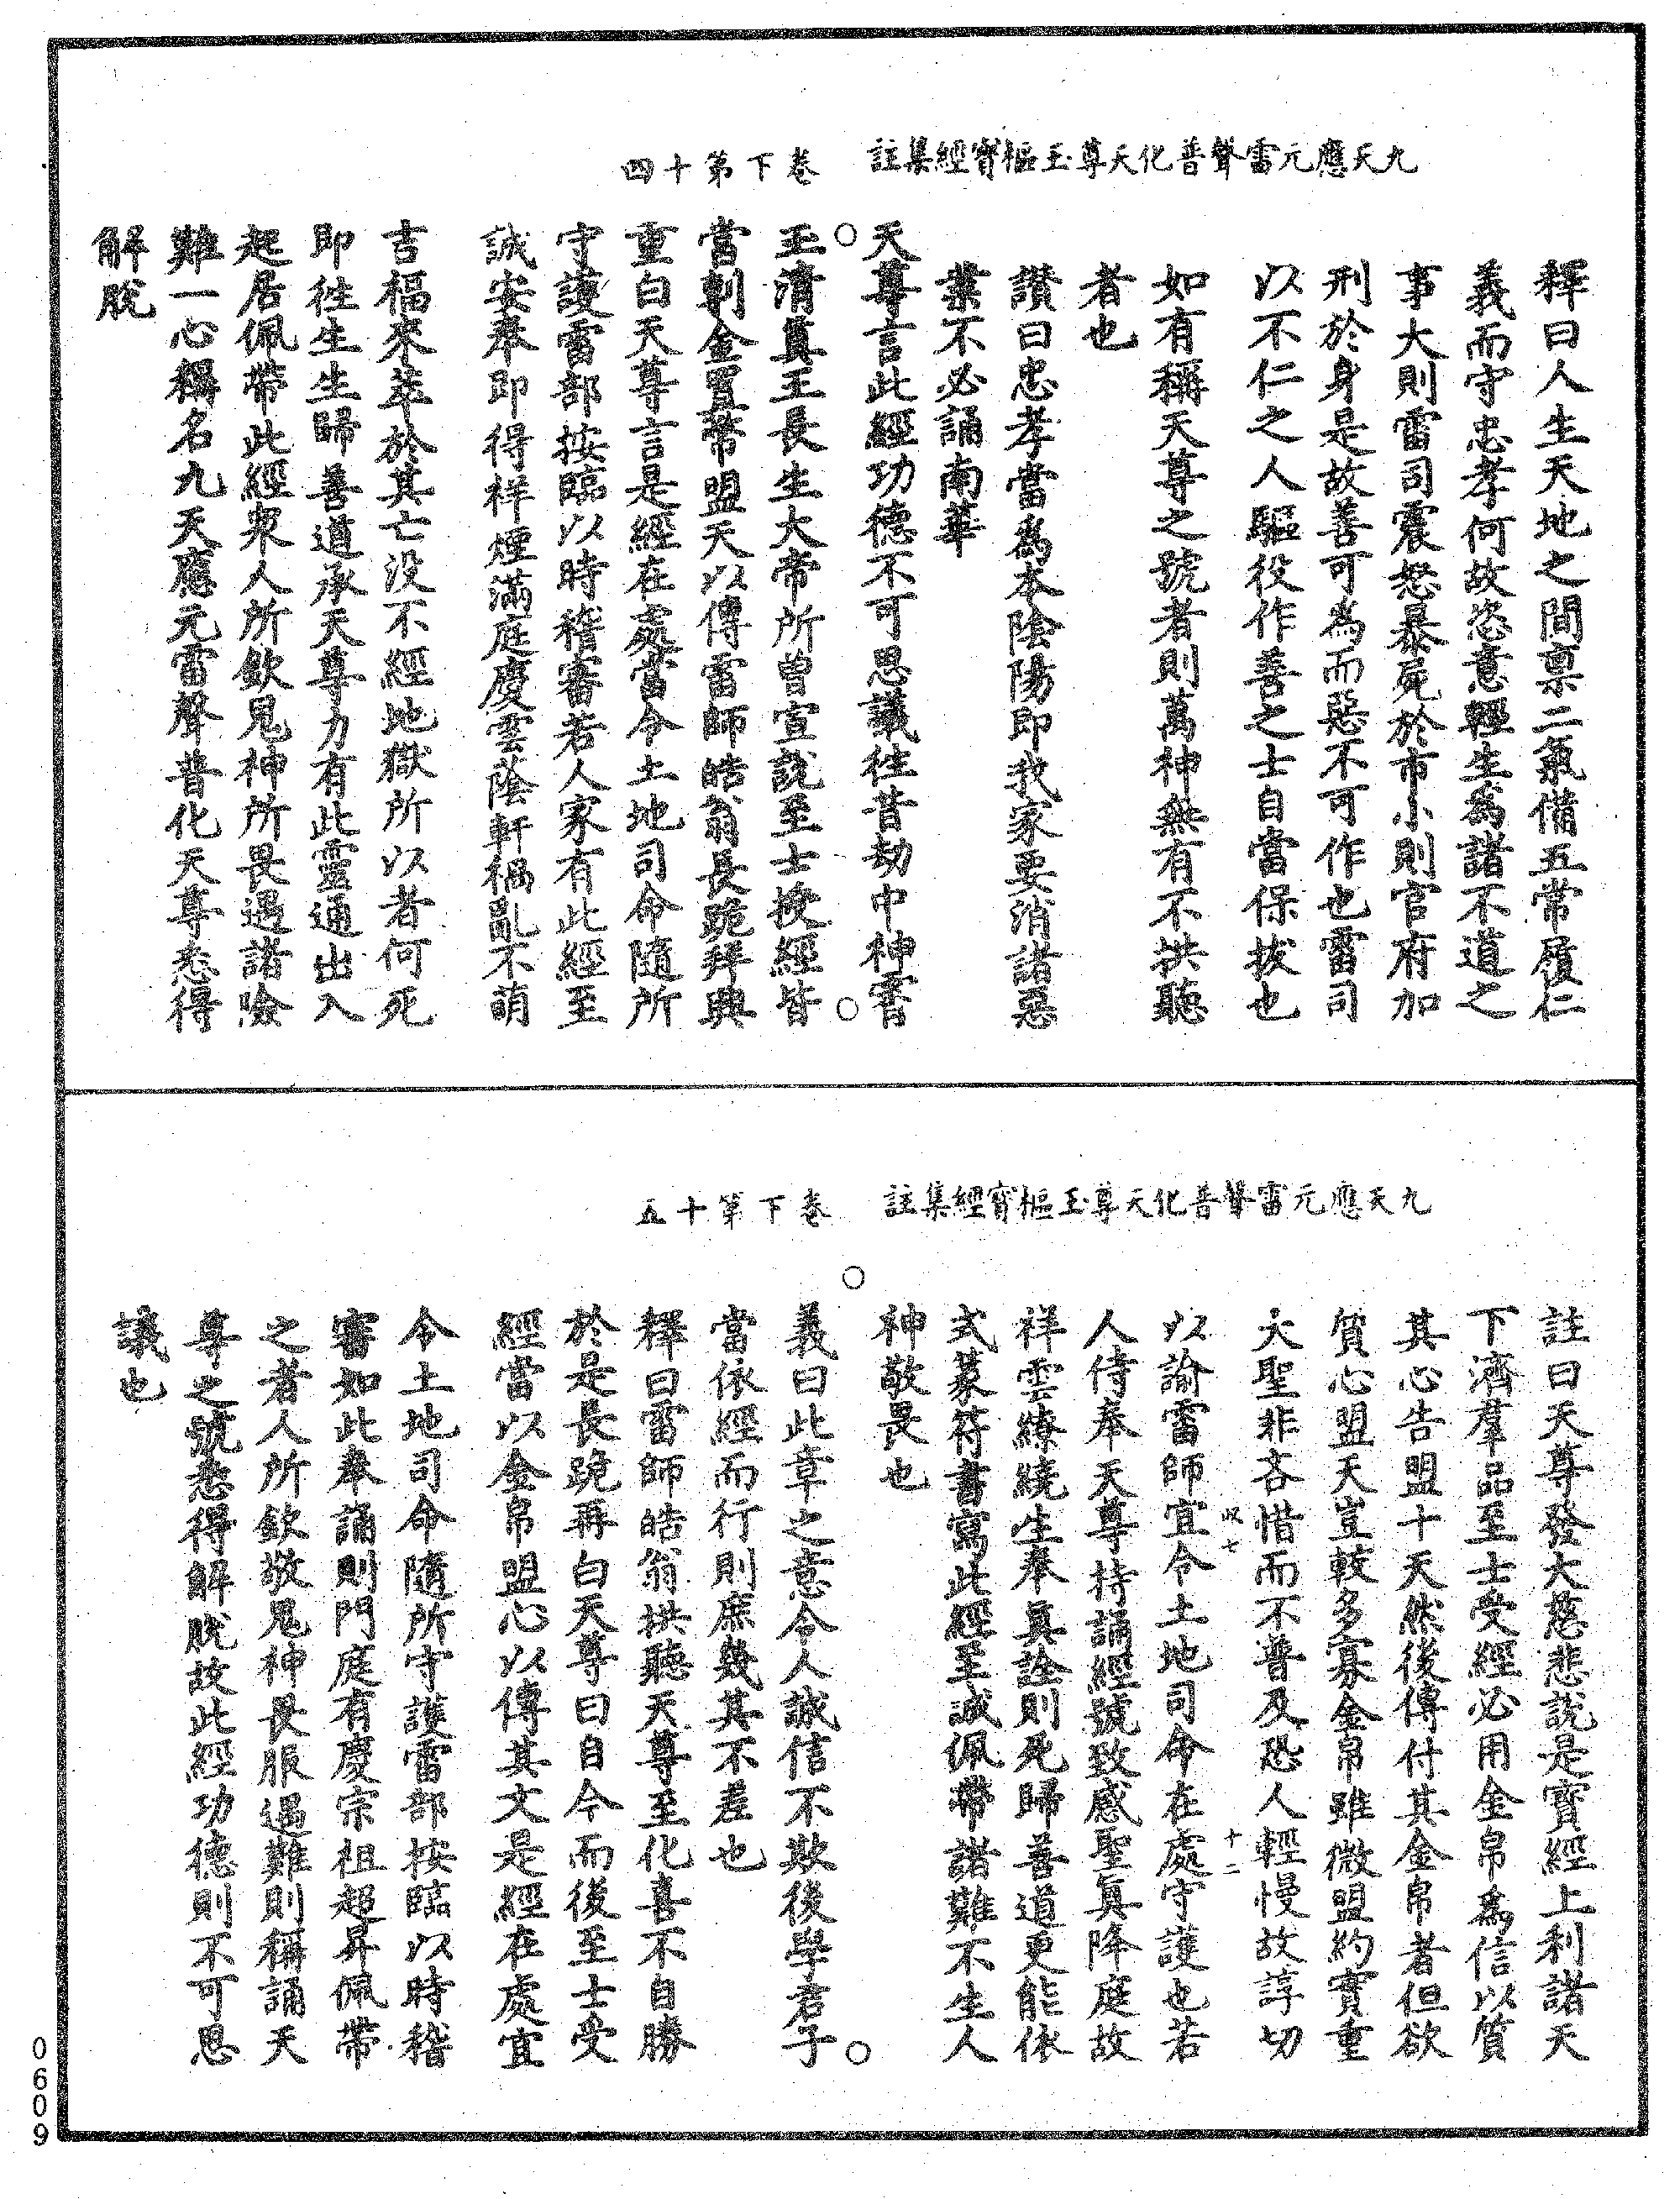 九天應元雷聲普化天尊玉樞寶經集註 卷下第十四
釋曰人生天地之間禀二氣備五常履仁
義而守忠孝何故恣意輕生為諸不道之
事大則雷司震怒暴屍於市小則官府加
刑於身是故善可為而惡不可作也雷司
以不仁之人驅役作善之士自當保拔也
如有稱天尊之號者則萬神無有不拱聽
者也
讃曰忠孝當為本陰陽即我家要消諸惡
業不必誦南華
天尊言此經功德不可思議往昔劫中神霄
玉清真王長生大帝所曾宣說至士授經皆
當剌金置幣盟天以傳雷師皓翁長跪拜興
重白天尊言是經在處當令土地司命隨所
守護雷部按臨以時稽審若人家有此經至
誠安奉即得祥煙滿庭慶雲蔭軒禍亂不萌
吉福來萃於其亡没不經地獄所以者何死
即徃生生歸善道承天尊力有此靈通出入
起居佩帶此經衆人所欽鬼神所畏遇諸險
難一心稱名九天應元雷聲普化天尊悉得
解脫
九天應元雷聲普化天尊玉樞寶經集註 卷下第十五
註曰天尊發大慈悲說是寳經上利諸天
下濟羣品至士受經必用金帛為信以質
其心告盟十天然後傳付其金帛者但欲
質心盟天豈較多寡金帛雖微盟約實重
大聖非吝惜而不普及恐人輕慢故諄切
以諭雷師宜令土地司命在處守護也若
人侍奉天尊持誦經號致感聖真降庭故
祥雲繚繞生奉真詮則死歸善道更能依
式篆符書寫此經至誠佩帶諸難不生人
神敬畏也
義曰此章之意令人誠信不欺後學君子
當依經而行則庶幾其不差也
釋曰雷師皓翁拱聽天尊至化喜不自勝
於是長跪再白天尊曰自今而後至士受
經當以金帛盟心以傳其文是經在處宜
令土地司命隨所守護雷部按臨以時稽
審如此奉誦則門庭有慶宗祖超昇佩帶
之者人所欽敬鬼神畏服遇難則稱誦天
尊之號悉得解脫故此經功德則不可思
議也
0609